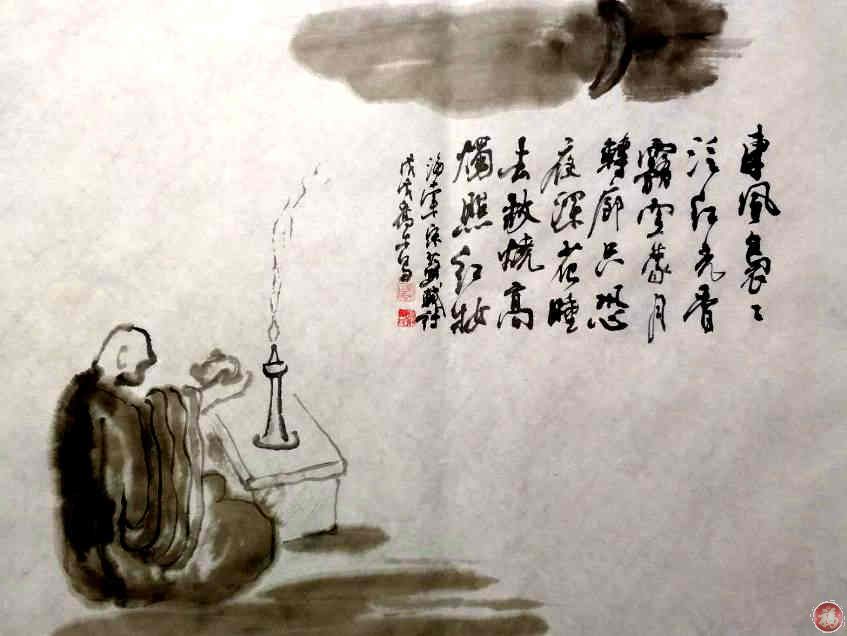 東風裊〻
泛红光香
霧空蒙月
轉廊只恐
夜深花睡
去故燒高
燭照红妝
海棠宋蘇軾詩
戊戌
福